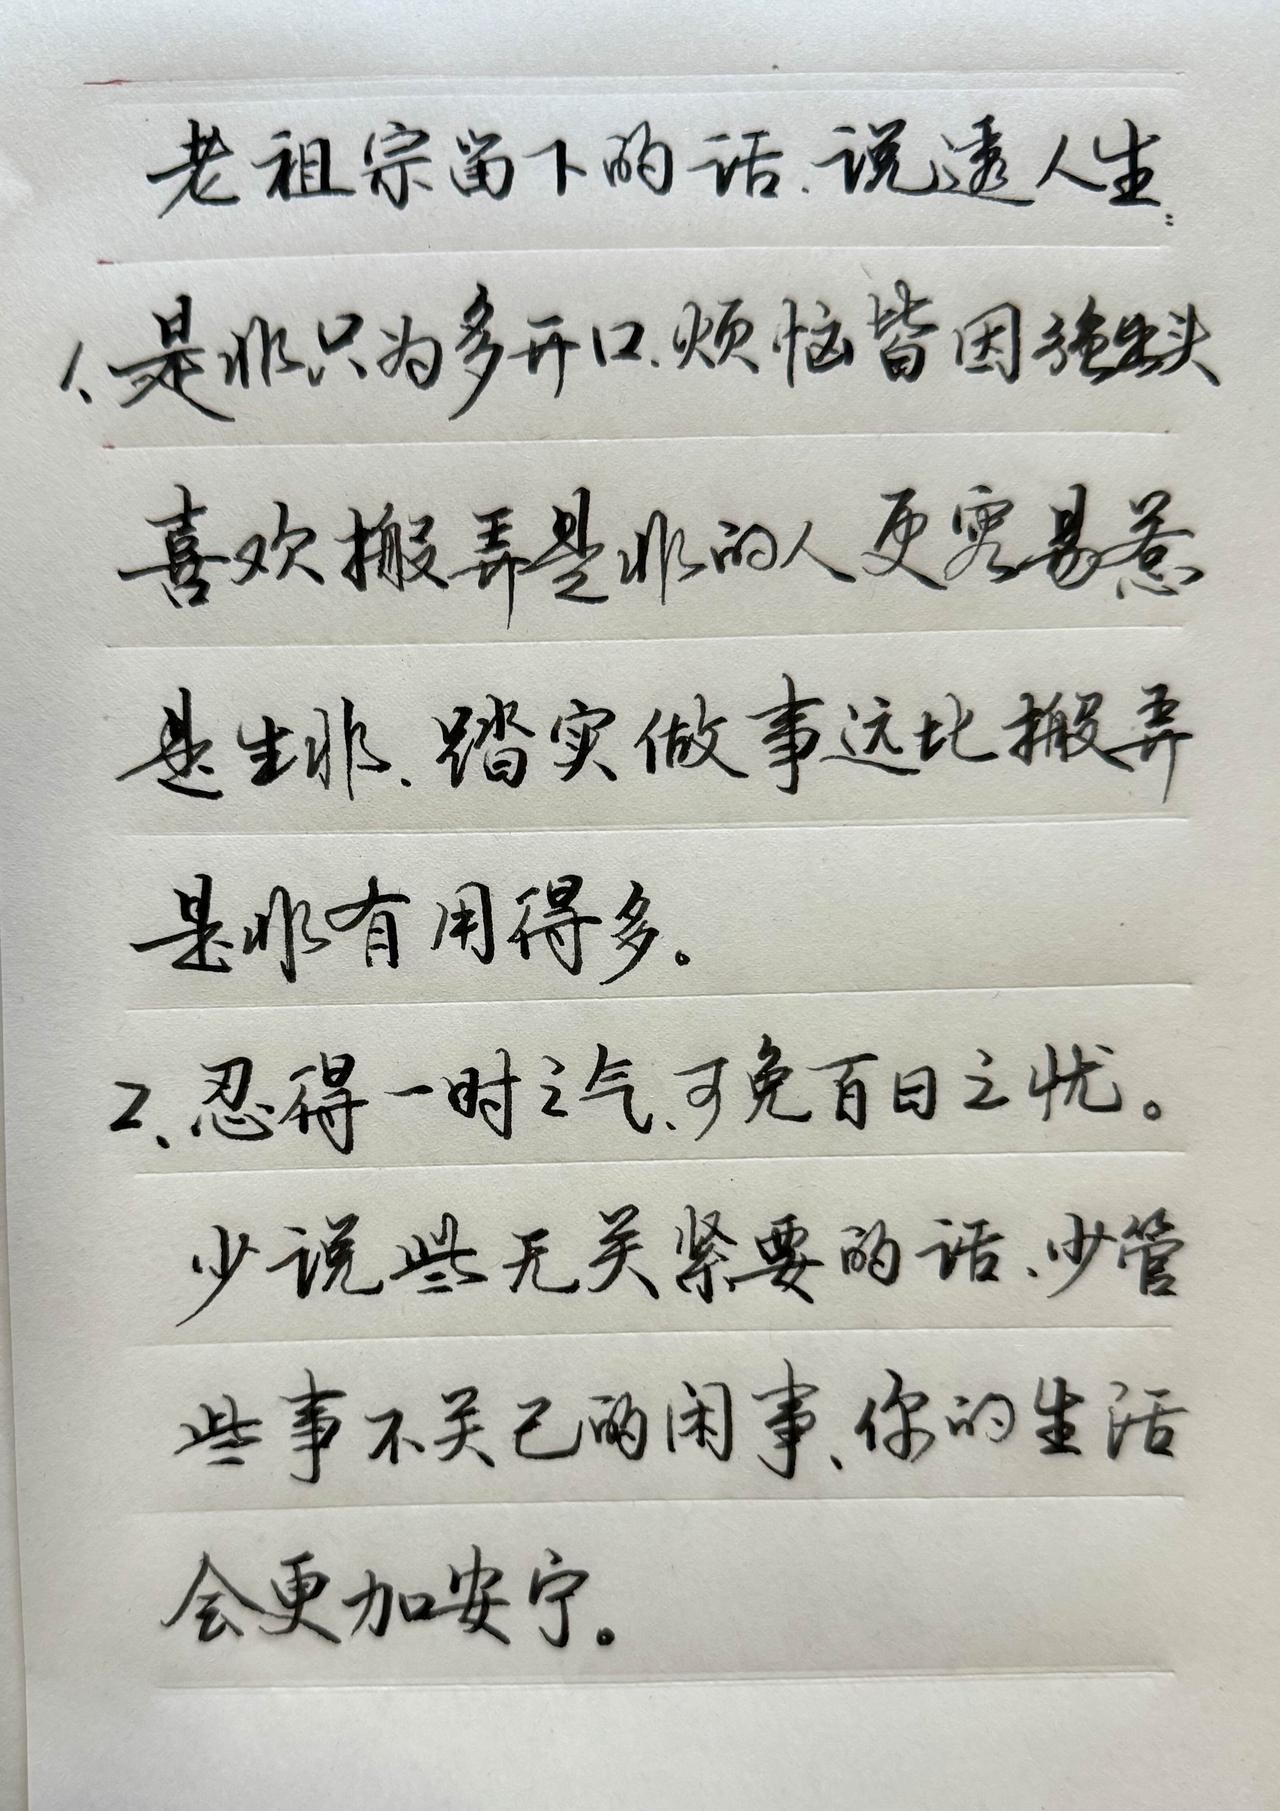 老祖宗留下的话、说透人生:
1、是非只为多开口、烦恼皆因强出头
喜欢搬弄是非的人更容易惹
是生非、踏实做事远比搬弄
是非有用得多。
2、忍得一时之气、可免百日之忧。
少说些无关紧要的话、少管
些事不关己的闲事、你的生活
会更加安宁。